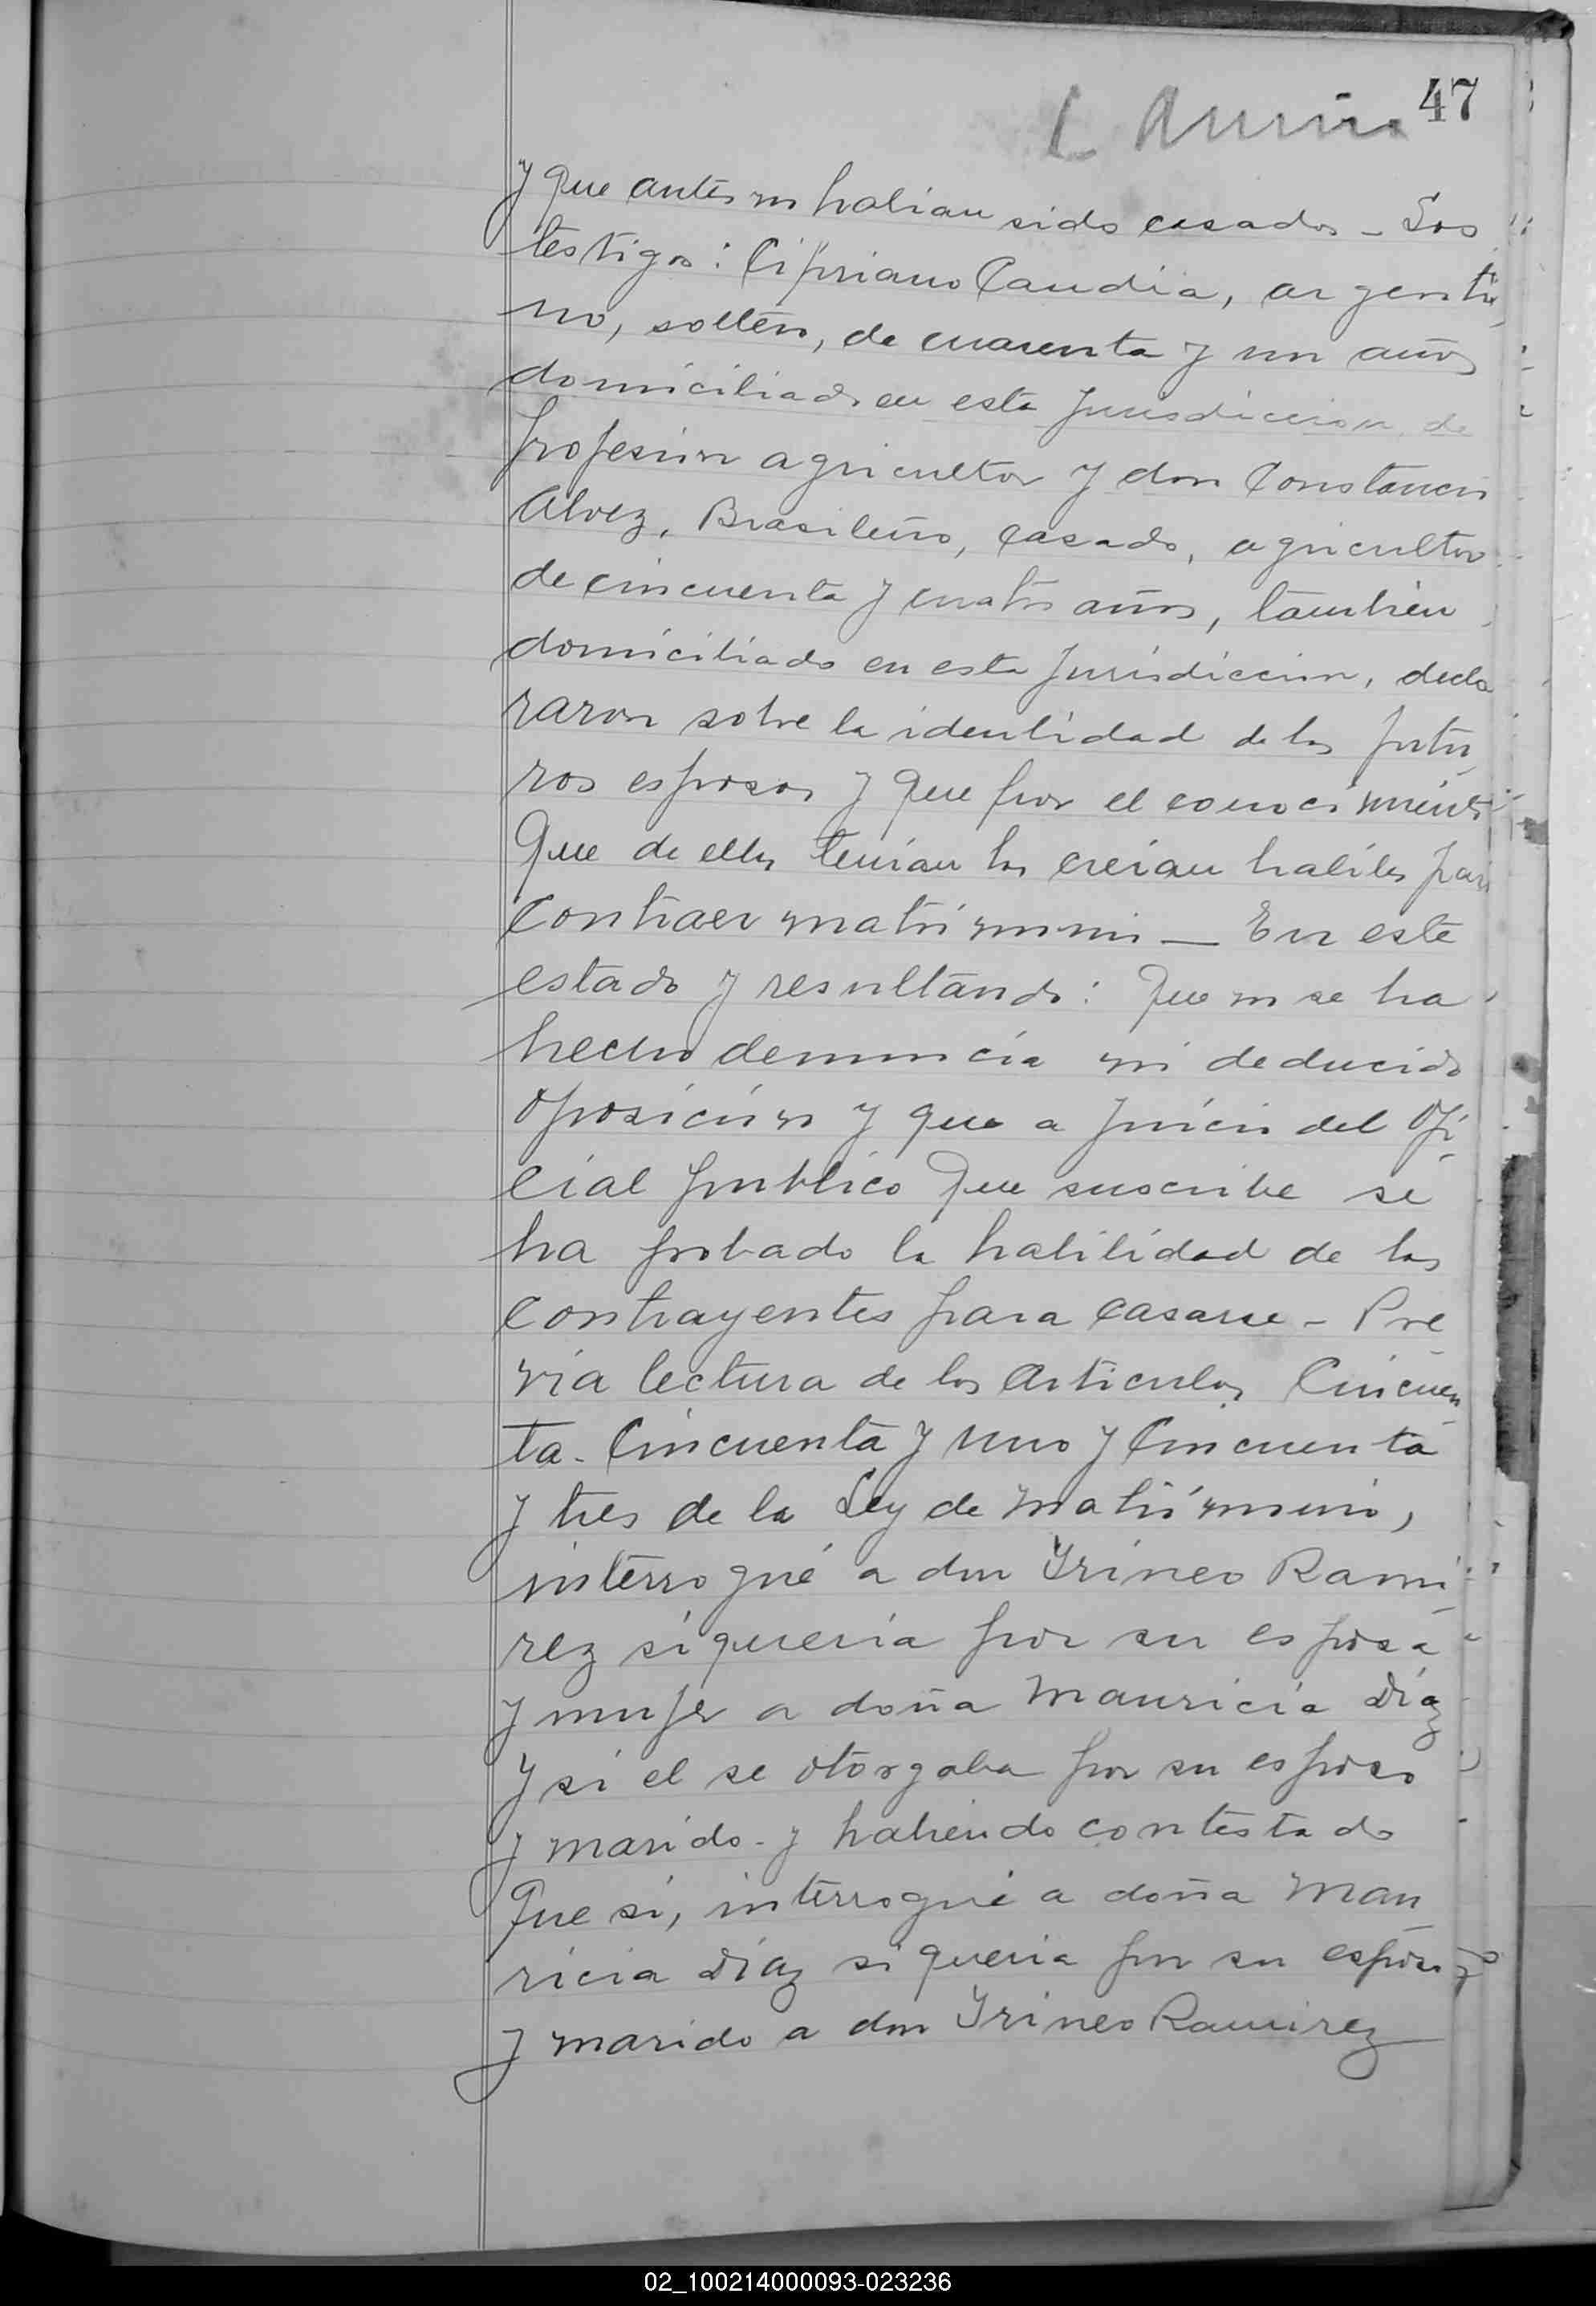 47
y que antes no habian sido casados - Los
testigos: Cipriano Candia, argenti
no, soltero, de cuarenta y un años
domiciliado en esta jurisdiccion, de
profesion agricultor y don Constancio
Alvez, Brasileño, casado, agricultor
de cincuenta y cuatro años, tambien
domiciliado en esta jurisdiccion, decla
raron sobre la identidad de los futu
ros esposos y que por el conocimiento
que de ellos tenian los creian habiles para
contraer matrimonio — En este
estado y resultando: Que no se ha
hecho denuncia ni deducido
oposicion y que a juicio del Ofi
cial publico que suscribe se
ha probado la habilidad de los
contrayentes para casarse - Pre
via lectura de los Articulos Cincuen
ta - Cincuenta y uno y Cincuenta
y tres de la Ley de Matrimonio,
interrogué a don Yrineo Rami
rez si queria por su esposa
y mujer a doña Mauricia Diaz
y si el se otorgaba por su esposo
y marido - y habiendo contestado
que si, interrogué a doña Mau
ricia Diaz si queria por su esposo
y marido a don Yrineo Ramirez
02_100214000093-023236